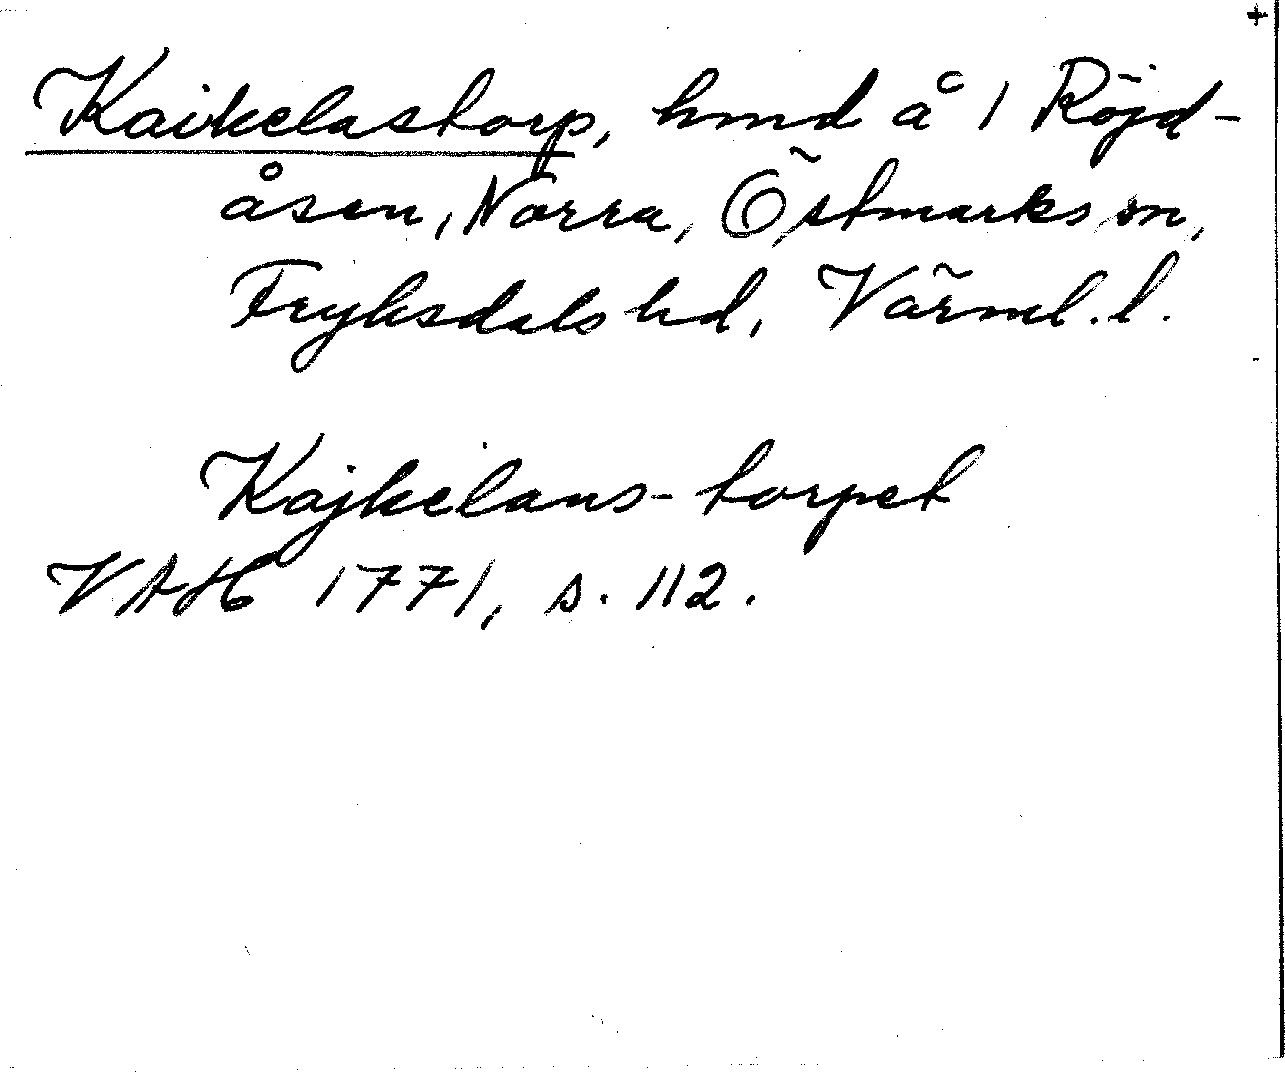 +
Kaikelastorp, hmd å 1 Röjd-
åsen, Norra, Östmarks sn,
Fryksdals hd, Värml. l.
Kajkelans-torpet
VAH 1771, s. 112.